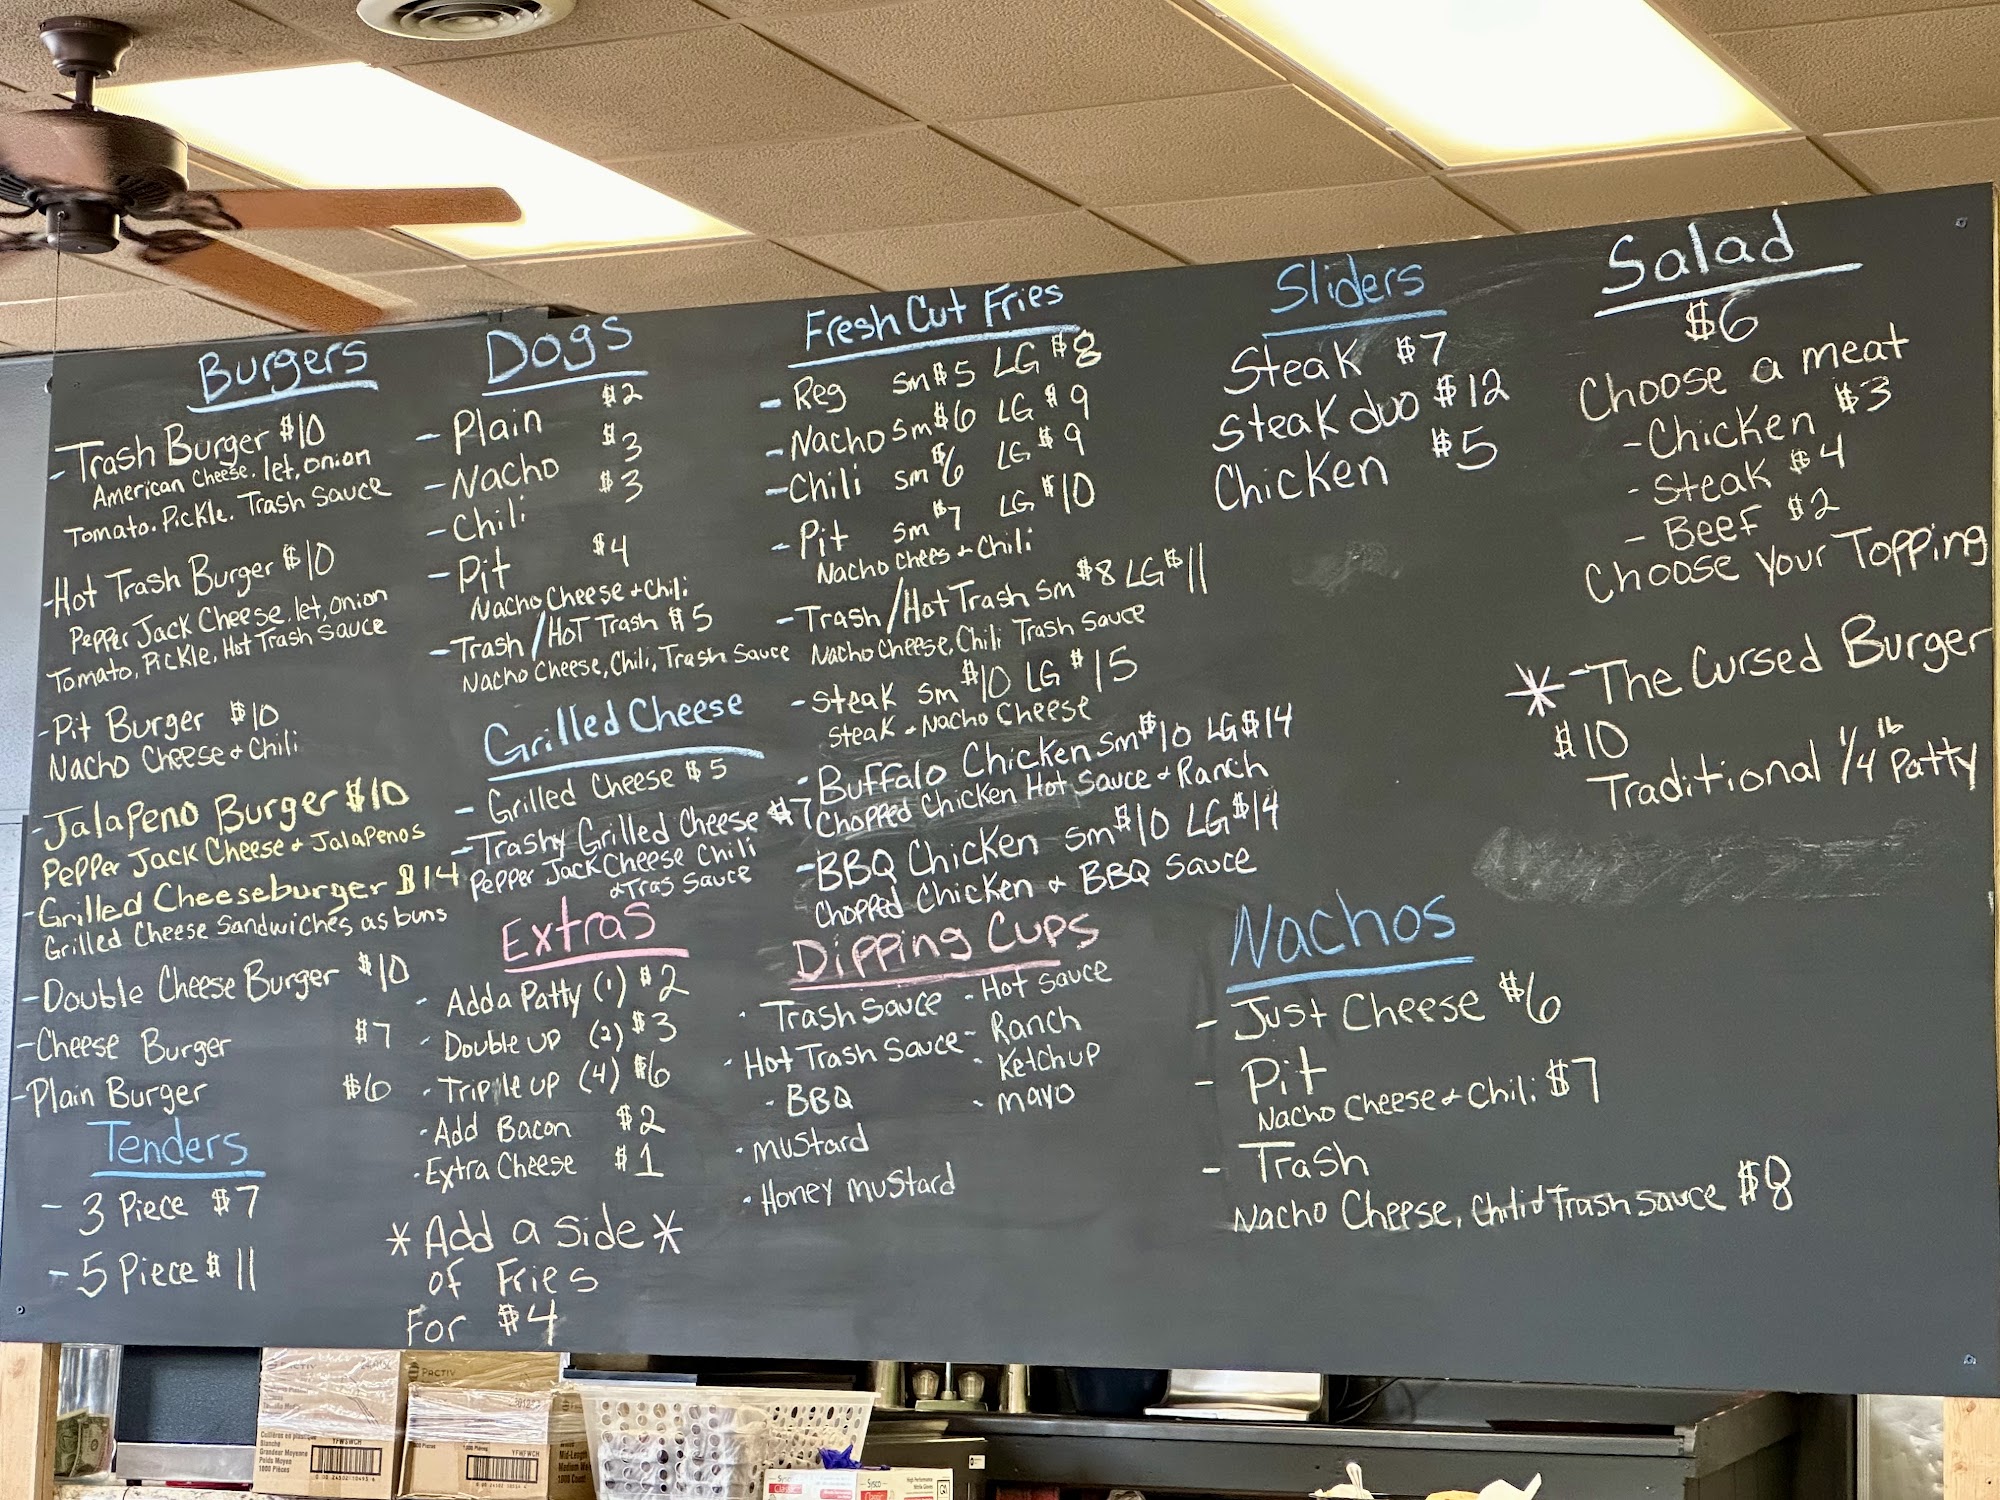 Burgers
- Trash Burger $10
American Cheese. let, onion
Tomato. Pickle. Trash Sauce
- Hot Trash Burger $10
Pepper Jack Cheese. let, onion
Tomato, Pickle, Hot Trash Sauce
- Pit Burger $10
Nacho Cheese + Chili
- Jalapeno Burger $10
Pepper Jack Cheese + Jalapenos
- Grilled Cheeseburger $14
Grilled Cheese Sandwiches as buns
- Double Cheese Burger $10
- Cheese Burger $7
- Plain Burger $6
Tenders
- 3 Piece $7
- 5 Piece $11
Dogs
- Plain $2
- Nacho $3
- Chili $3
- Pit $4
Nacho Cheese + Chili
- Trash/Hot Trash $5
Nacho Cheese, Chili, Trash Sauce
Grilled Cheese
- Grilled Cheese $5
- Trashy Grilled Cheese $7
Pepper Jack Cheese Chili
+ Tras Sauce
Extras
- Add a Patty (1) $2
- Double up (2) $3
- Triple up (4) $6
- Add Bacon $2
- Extra Cheese $1
* Add a side *
of Fries
For $4
Fresh Cut Fries
- Reg Sm $5 LG $8
- Nacho Sm $6 LG $9
- Chili Sm $6 LG $9
- Pit Sm $7 LG $10
Nacho Chees + Chili
- Trash/Hot Trash Sm $8 LG $11
Nacho Cheese, Chili Trash Sauce
- Steak Sm $10 LG $15
Steak + Nacho Cheese
- Buffalo Chicken Sm $10 LG $14
Chopped Chicken Hot Sauce + Ranch
- BBQ Chicken Sm $10 LG $14
Chopped Chicken + BBQ Sauce
Dipping Cups
- Trash Sauce - Hot Sauce
- Hot Trash Sauce - Ranch
- Ketchup
- BBQ - mayo
- mustard
- Honey mustard
Sliders
Steak $7
Steak duo $12
Chicken $5
Salad
$6
Choose a meat
- Chicken $3
- Steak $4
- Beef $2
Choose your Topping
* - The Cursed Burger
$10
Traditional 1/4 lb Patty
Nachos
- Just Cheese $6
- Pit
Nacho Cheese + Chili $7
- Trash
Nacho Cheese, Chili + Trash Sauce $8
PACTIV
YFWSWCH
YFWFWCH
Sysco
Classic